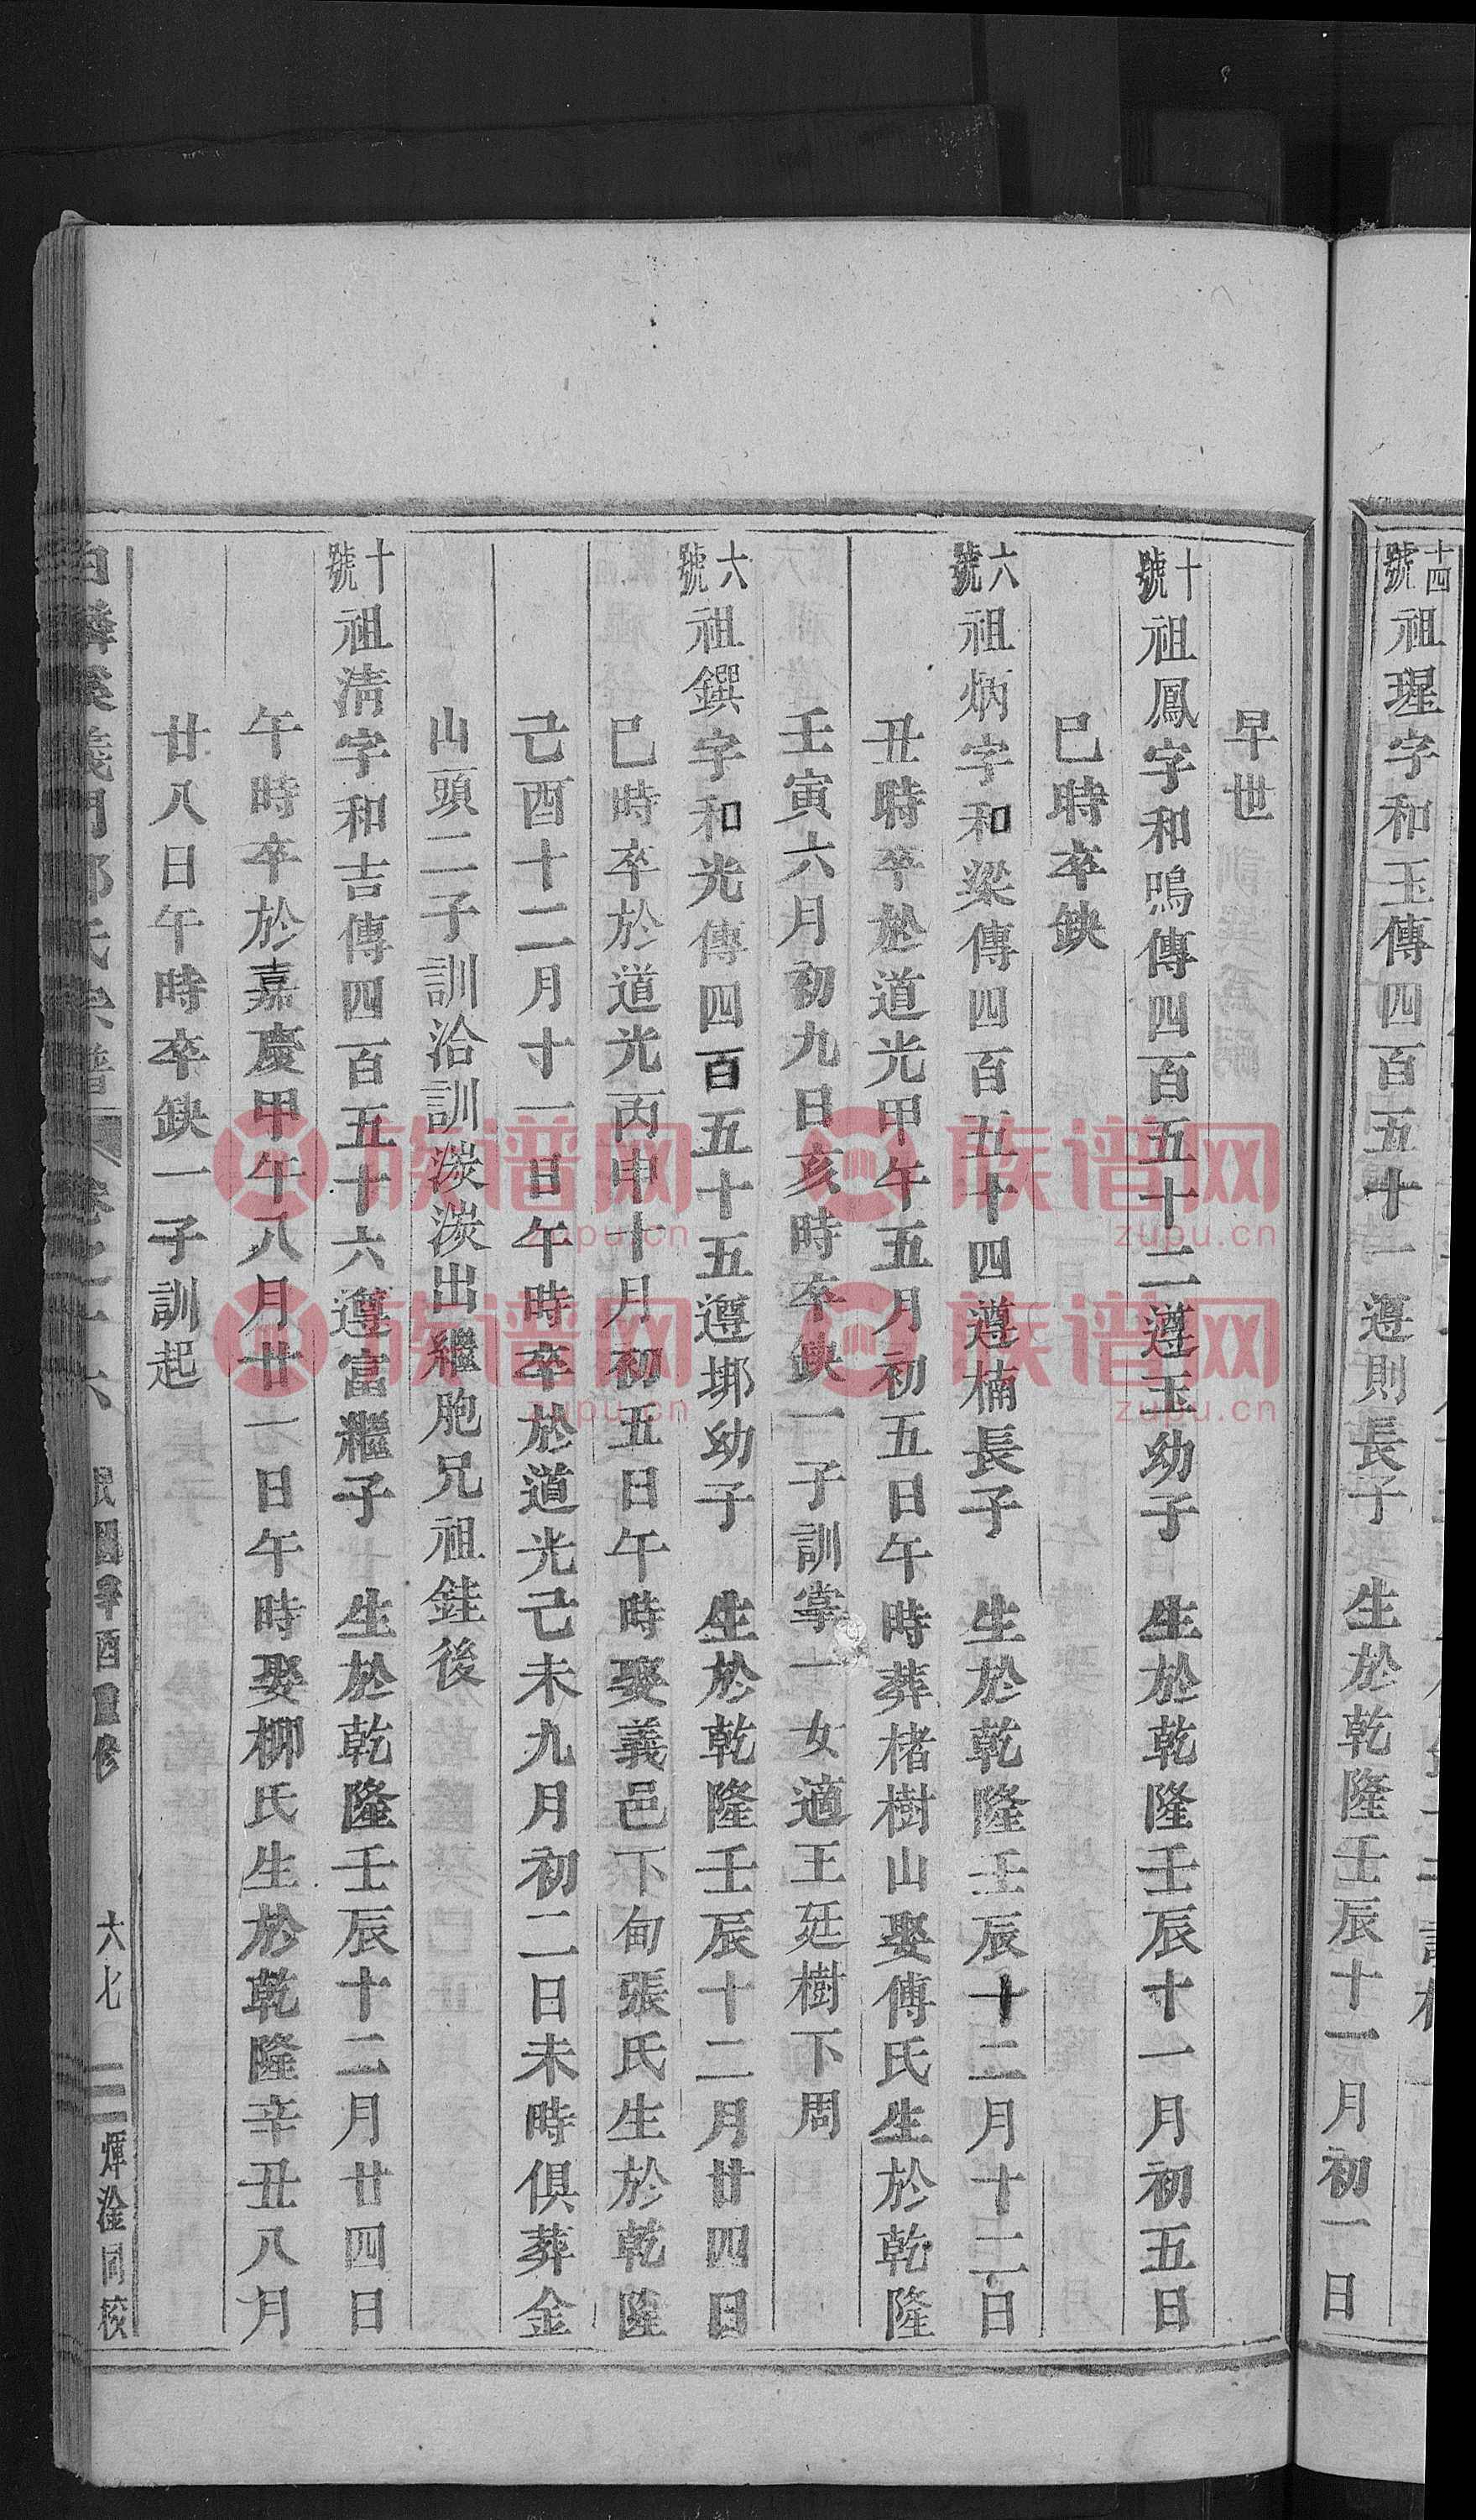 十四號祖瑆字和玉傳四百五十一遵則長子 生於乾隆壬辰十一月初一日
早世
十號祖鳳字和鳴傳四百五十二遵玉幼子 生於乾隆壬辰十一月初五日
巳時卒缺
六號祖炳字和梁傳四百五十四遵楠長子 生於乾隆壬辰十二月十二日
丑時卒於道光甲午五月初五日午時葬楮樹山娶傅氏生於乾隆
壬寅六月初九日亥時卒缺一子訓掌一女適王廷樹下周
六號祖鐉字和光傳四百五十五遵鄈幼子 生於乾隆壬辰十二月廿四日
巳時卒於道光丙申十月初五日午時娶義邑下甸張氏生於乾隆
己酉十二月寸一日午時卒於道光己未九月初二日未時俱葬金
山頭二子訓洽訓淡淡出繼胞兄祖銈後
十號祖清字和吉傳四百五十六遵富繼子 生於乾隆壬辰十二月廿四日
午時卒於嘉慶甲午八月廿一日午時娶柳氏生於乾隆辛丑八月
廿八日午時卒缺一子訓起
義門鄭氏宗譜 卷之十六 民國辛酉重修 六七 煇淦同校
族谱网
zupu.cn
族谱网
zupu.cn
族谱网
zupu.cn
族谱网
zupu.cn